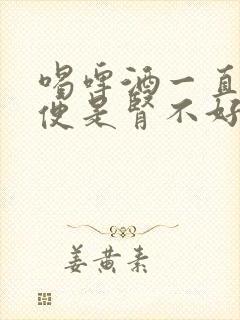 喝啤酒一直
便是肾不好
姜黄素